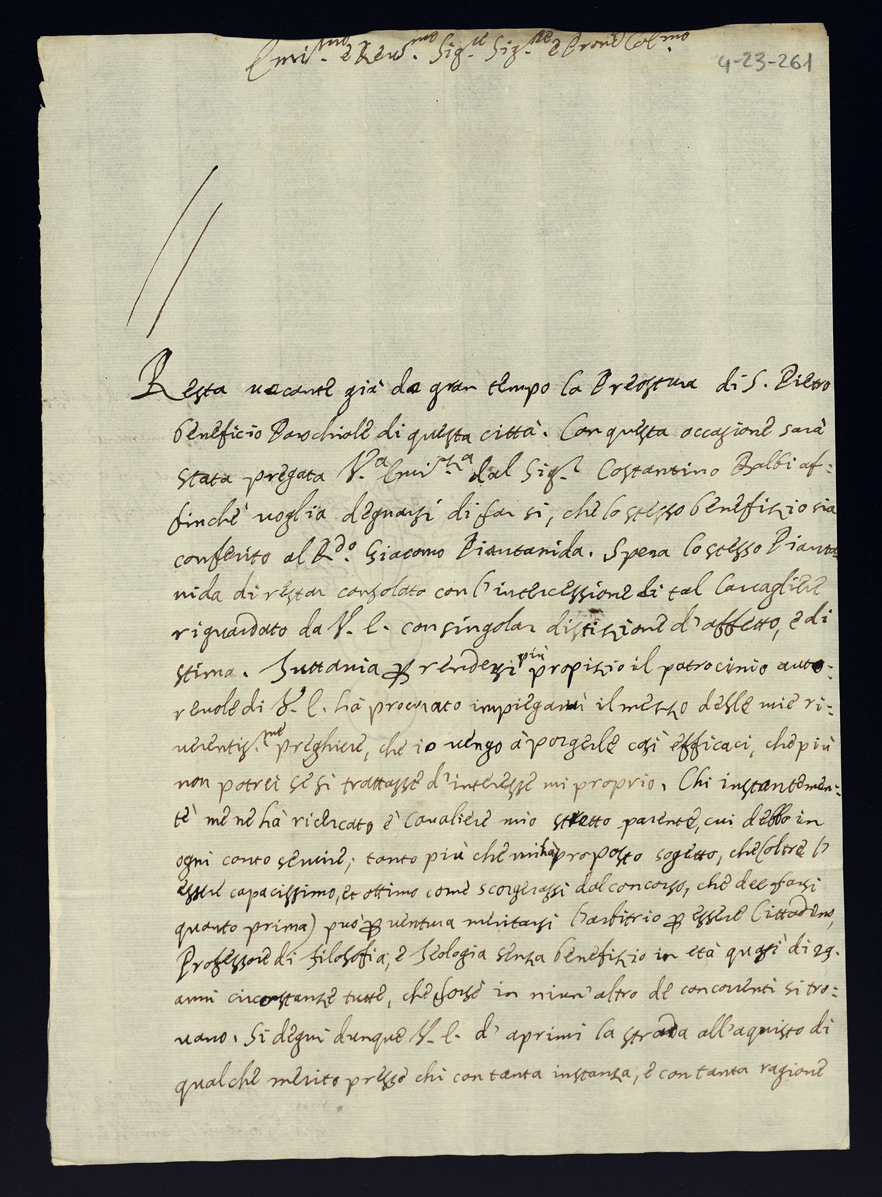 Emi.mo e Rev.mo Sig.re Sig.re e Prone Col.mo
4-23-261
Resta uacante già da gran tempo la Preostura di S. Pietro
beneficio Parochiale di questa città. Con questa occasione sarà
stata pregata V.a Emi.za dal Sig.r Costantino Balbi af=
finchè uoglia degnarsi di far si, che lo stesso benefizio sia
conferito al R.do Giacomo Piantanida. Spera lo stesso Pianta
nida di restar consolato con l'intercessione di tal Caualiere
riguardato da V. E. con singolar distizione d'affetto, e di
stima. Tuttauia p rendersi più propizio il patrocinio auto=
reuole di V. E. hà procurato impiegarui il mezzo delle mie ri=
uerentis.me preghiere, che io uengo à porgerle così efficaci, che più
non potrei se si trattasse d'interesse mi proprio. Chi instantemen=
te me ne hà ricercato è Caualiere mio stretto parente, cui debbo in
ogni conto seruire; tanto più che mi hà proposto sogetto, che (oltre l'
essere capacissimo, et ottimo come scorgerassi dal concorso, che dee farsi
quanto prima) può p uentura meritarsi l'arbitrio p essere Cittadino,
Professore di Filosofia, e Teologia senza benefizio in età quasi di 29.
anni circostanze tutte, che forse in niun'altro de concorrenti si tro=
uano. Si degni dunque V. E. d'aprimi la strada all'aquisto di
qualche merito presso chi con tanta instanza, e con tanta ragione